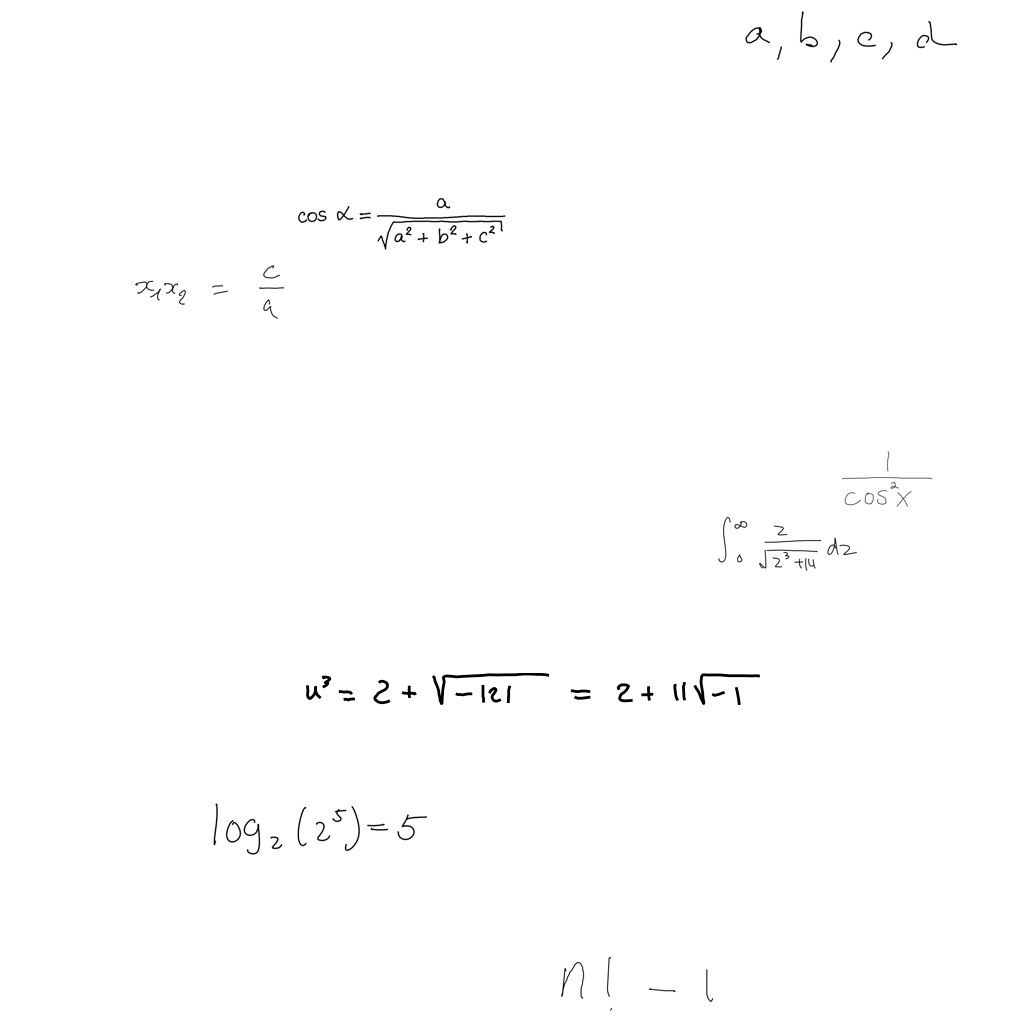 a, b, c, d
cos α = a / √(a² + b² + c²)
x₁x₂ = c / a
1 / cos²x
∫₀^∞ z / √(z³ + 14) dz
u³ = 2 + √-121 = 2 + 11√-1
log₂(2⁵) = 5
n! - 1